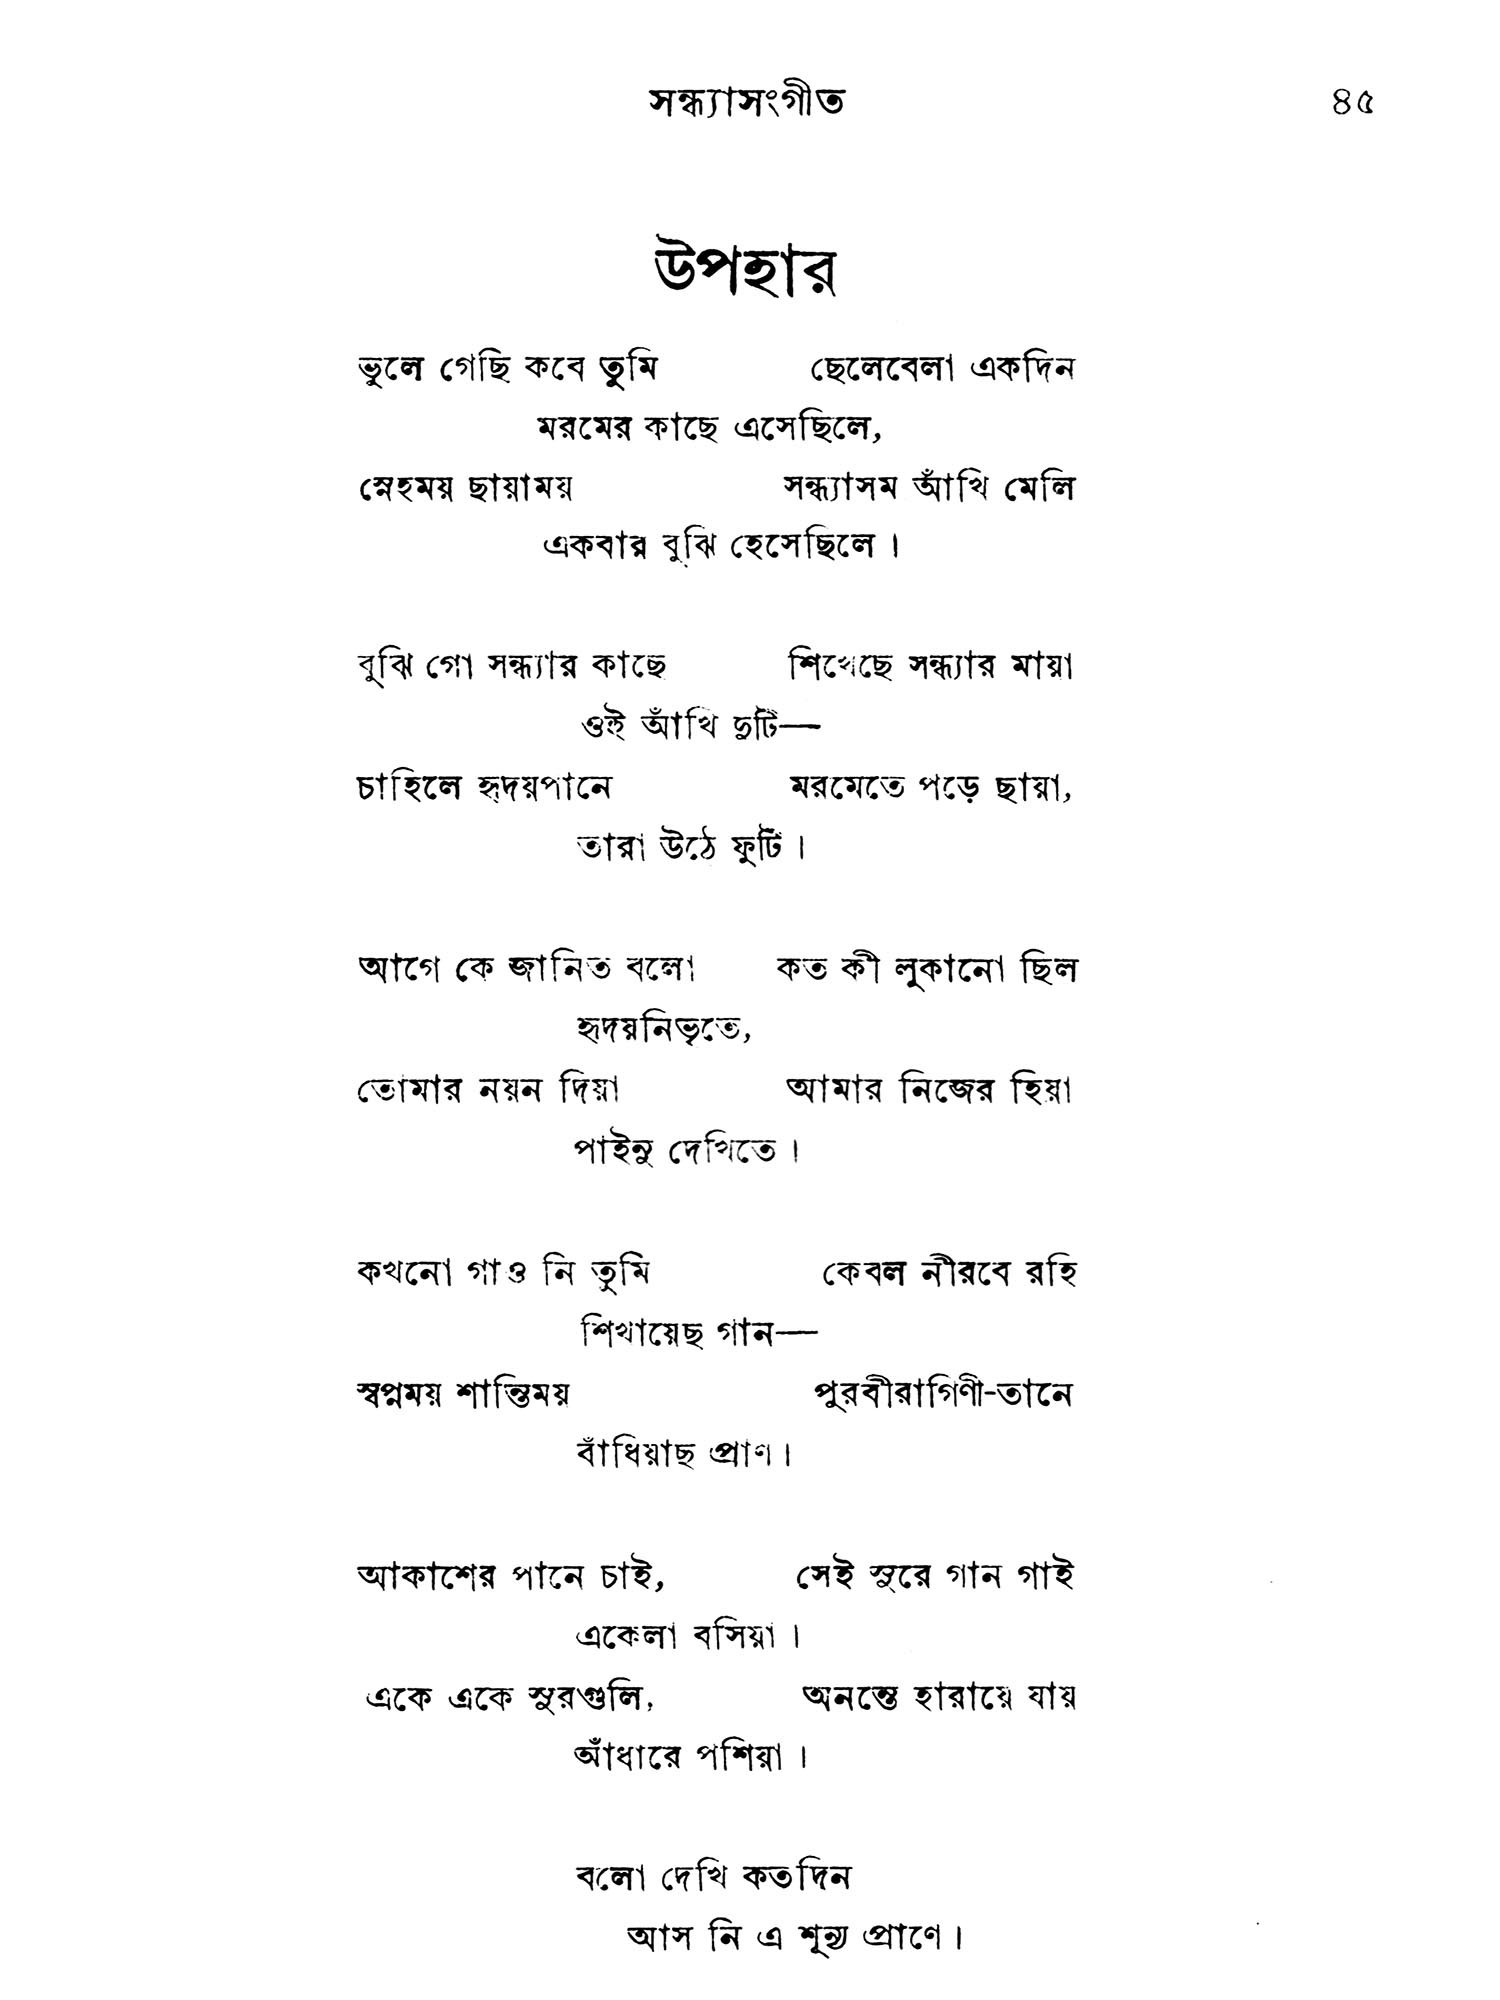 সন্ধ্যাসংগীত ৪৫
উপহার
ভুলে গেছি কবে তুমি ছেলেবেলা একদিন
মরমের কাছে এসেছিলে,
স্নেহময় ছায়াময় সন্ধ্যাসম আঁখি মেলি
একবার বুঝি হেসেছিলে।
বুঝি গো সন্ধ্যার কাছে শিখেছে সন্ধ্যার মায়া
ওই আঁখি দুটি—
চাহিলে হৃদয়পানে মরমেতে পড়ে ছায়া,
তারা উঠে ফুটি।
আগে কে জানিত বলো কত কী লুকানো ছিল
হৃদয়নিভৃতে,
তোমার নয়ন দিয়া আমার নিজের হিয়া
পাইনু দেখিতে।
কখনো গাও নি তুমি কেবল নীরবে রহি
শিখায়েছ গান—
স্বপ্নময় শান্তিময় পুরবীরাগিণী-তানে
বাঁধিয়াছ প্রাণ।
আকাশের পানে চাই, সেই সুরে গান গাই
একেলা বসিয়া।
একে একে সুরগুলি, অনন্তে হারায়ে যায়
আঁধারে পশিয়া।
বলো দেখি কতদিন
আস নি এ শূন্য প্রাণে।